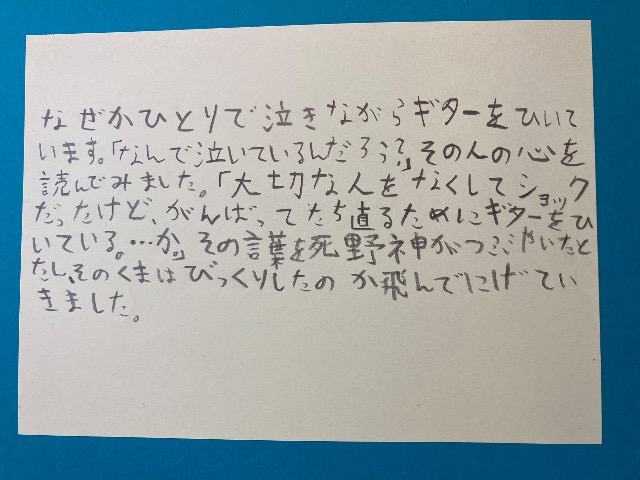 なぜかひとりで泣きながらギターをひいて
います。「なんで泣いているんだろう?」その人の心を
読んでみました。「大切な人をなくしてショック
だったけど、がんばってたち直るためにギターをひ
いている。…か。」その言葉を死野神がつぶやいたと
たん、そのくまはびっくりしたのか飛んでにげてい
きました。